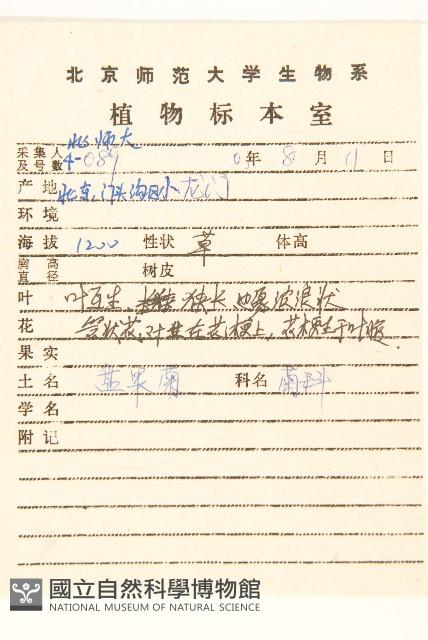 北京师范大学生物系
植物标本室
采集人及号数 北师大 4-089 03年8月11日
产地 北京,门头沟区小龙门
环境
海拔 1200 性状 草 体高
胸高直径 树皮
叶 叶互生 狭长 边缘波浪状
花 管状花,对生在花梗上,花梗生于叶腋.
果实
土名 盖果菊 科名 菊科
学名
附记
國立自然科學博物館
NATIONAL MUSEUM OF NATURAL SCIENCE